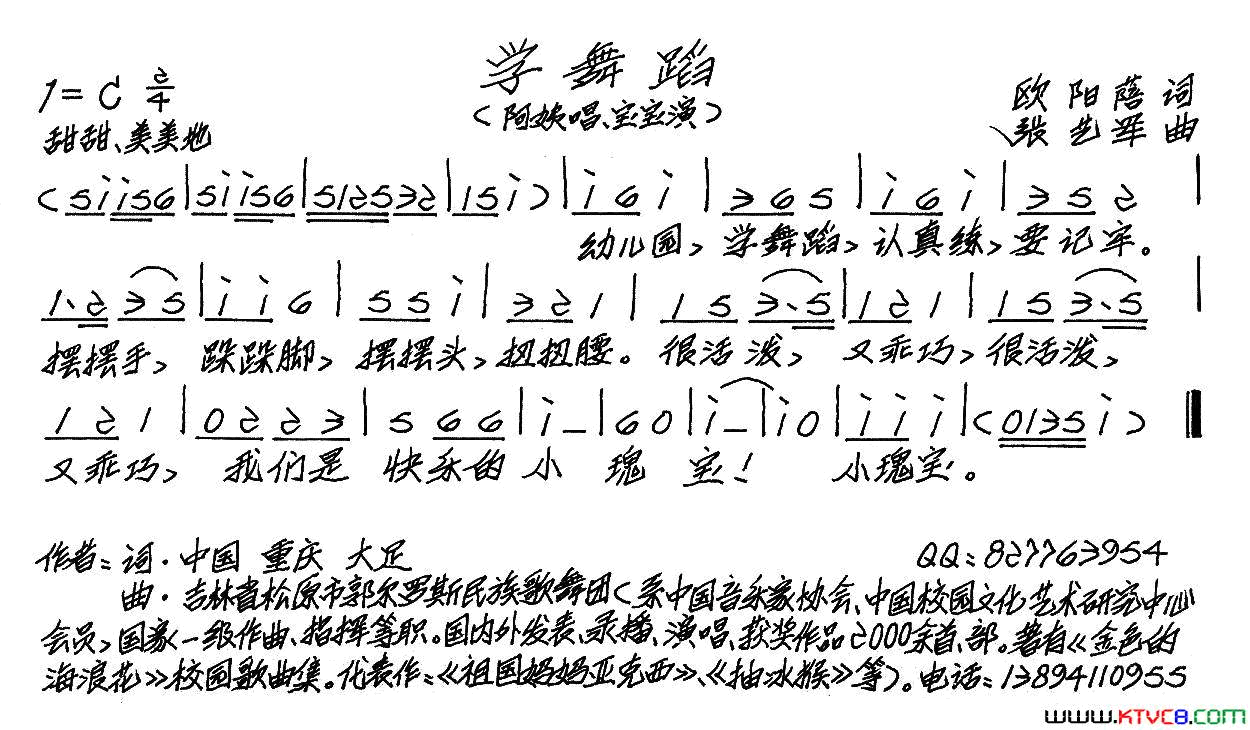 学舞蹈
1=C 2/4
(阿姨唱、宝宝演)
欧阳蓓 词
甜甜、美美地
张艺军 曲
(5i i56|5i i56|512532|15i)|i 6 i|3 6 5|i 6 i|3 5 2|
幼儿园,学舞蹈,认真练,要记牢。
1、2 3 5|i i 6|5 5 i|3 2 1|1 5 3、5|1 2 1|1 5 3、5|
摆摆手,跺跺脚,摆摆头,扭扭腰。很活泼,又乖巧,很活泼,
1 2 1|0 2 2 3|5 6 6|i –|6 0|i –|i 0|i i i|(0135 i)‖
又乖巧,我们是 快乐的小 瑰 宝! 小瑰宝。
作者:词·中国 重庆 大足 QQ:827763954
曲·吉林省松原市郭尔罗斯民族歌舞团(系中国音乐家协会、中国校园文化艺术研究中心
会员,国家一级作曲、指挥等职。国内外发表、录播、演唱、获奖作品2000余首、部。著有《金色的
海浪花》校园歌曲集。代表作:《祖国妈妈亚克西》、《抽冰猴》等)。电话:13894110955
www.KTVC8.com